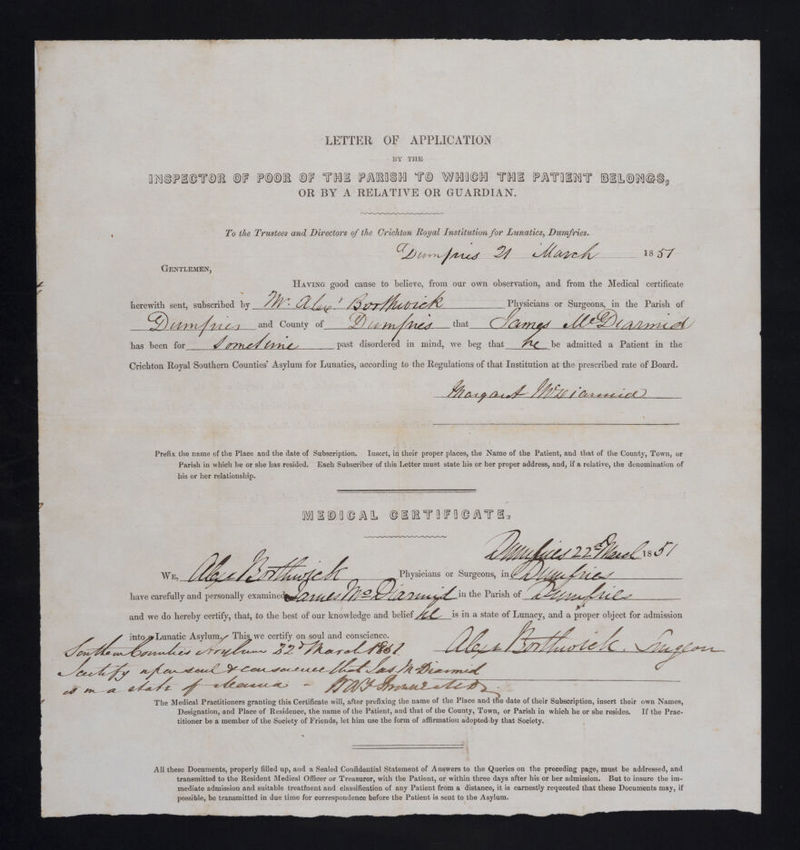 LETTER OF APPLICATION
BY THE
INSPECTOR OF POOR OF THE PARISH TO WHICH THE PATIENT BELONGS,
OR BY A RELATIVE OR GUARDIAN.
To the Trustees and Directors of the Crichton Royal Institution for Lunatics, Dumfries.
Dumfries 21 March 1851
GENTLEMEN,
HAVING good cause to believe, from our own observation, and from the Medical certificate
herewith sent, subscribed by Mr. Alexr Borthwick Physicians or Surgeons, in the Parish of
Dumfries and County of Dumfries that James McDiarmid
has been for Sometime past disordered in mind, we beg that he be admitted a Patient in the
Crichton Royal Southern Counties' Asylum for Lunatics, according to the Regulations of that Institution at the prescribed rate of Board.
Margaret McDiarmid
Prefix the name of the Place and the date of Subscription. Insert, in their proper places, the Name of the Patient, and that of the County, Town, or
Parish in which he or she has resided. Each Subscriber of this Letter must state his or her proper address, and, if a relative, the denomination of
his or her relationship.
MEDICAL CERTIFICATE.
Dumfries 22d March 1851
WE, Alexr Borthwick Physicians or Surgeons, in Dumfries
have carefully and personally examined James McDiarmid in the Parish of Dumfries
and we do hereby certify, that, to the best of our knowledge and belief he is in a state of Lunacy, and a proper object for admission
into a Lunatic Asylum. This we certify on soul and conscience.
Alexr Borthwick. Surgeon
Southern Counties Asylum 22d March 1851
I certify upon soul & conscience that Jas McDiarmid
is in a state of Mania
The Medical Practitioners granting this Certificate will, after prefixing the name of the Place and the date of their Subscription, insert their own Names,
Designation, and Place of Residence, the name of the Patient, and that of the County, Town, or Parish in which he or she resides. If the Prac-
titioner be a member of the Society of Friends, let him use the form of affirmation adopted by that Society.
All these Documents, properly filled up, and a Sealed Confidential Statement of Answers to the Queries on the preceding page, must be addressed, and
transmitted to the Resident Medical Officer or Treasurer, with the Patient, or within three days after his or her admission. But to insure the im-
mediate admission and suitable treatment and classification of any Patient from a distance, it is earnestly requested that these Documents may, if
possible, be transmitted in due time for correspondence before the Patient is sent to the Asylum.